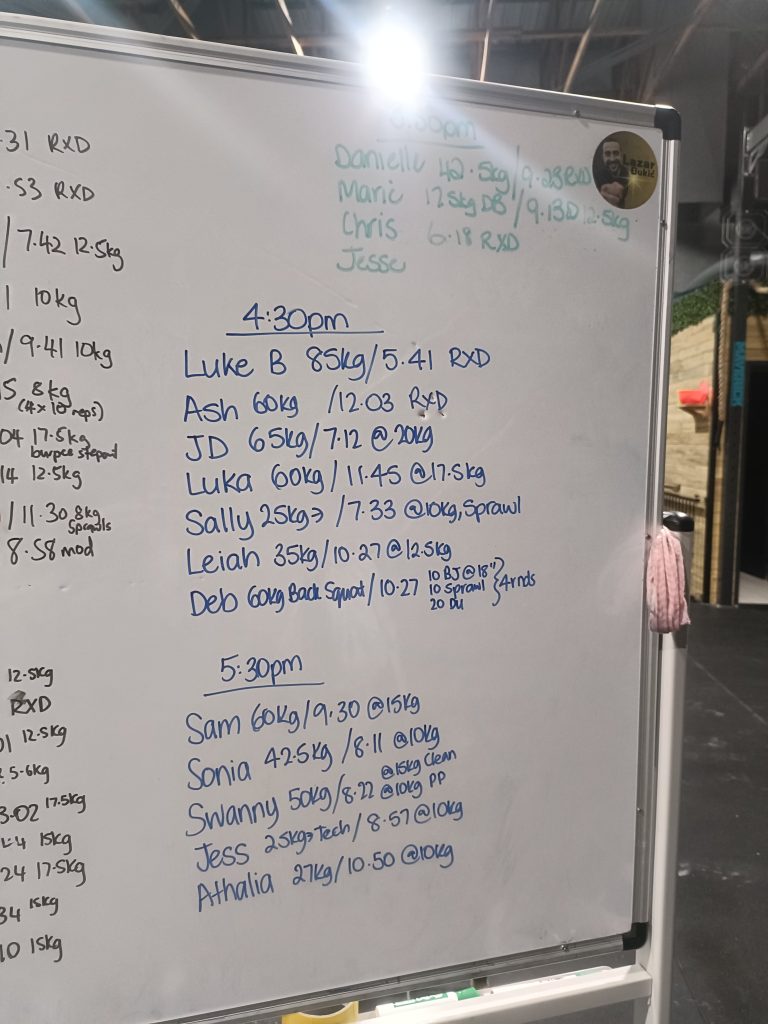 .31 RXD
.53 RXD
/ 7.42 12.5kg
10kg
/ 9.41 10kg
8kg
(4x10 reps)
04 17.5kg
14 12.5kg
/ 11.30 8kg
Sprawls
8.58 mod
12.5kg
RXD
01 12.5kg
5-6kg
3.02 17.5kg
15kg
24 17.5kg
34 15kg
10 15kg
Danielle 42.5kg / 9.23 RXD
Chris 6.18 RXD
Jesse
Lazar
Đukić
4:30pm
Luke B 85kg / 5.41 RXD
Ash 60kg / 12.03 RXD
JD 65kg / 7.12 @ 20kg
Luka 60kg / 11.45 @ 17.5kg
Sally 25kg → / 7.33 @ 10kg, Sprawl
Leiah 35kg / 10.27 @ 12.5kg
Deb 60kg Back Squat / 10.27 10 BJ @ 18" } 4 rnds
10 Sprawl
20 Du
5:30pm
Sam 60kg / 9.30 @ 15kg
Sonia 42.5kg / 8.11 @ 10kg
@ 15kg Clean
Swanny 50kg / 8.22 @ 10kg PP
Jess 25kg → Tech / 8.57 @ 10kg
Athalia 27kg / 10.50 @ 10kg